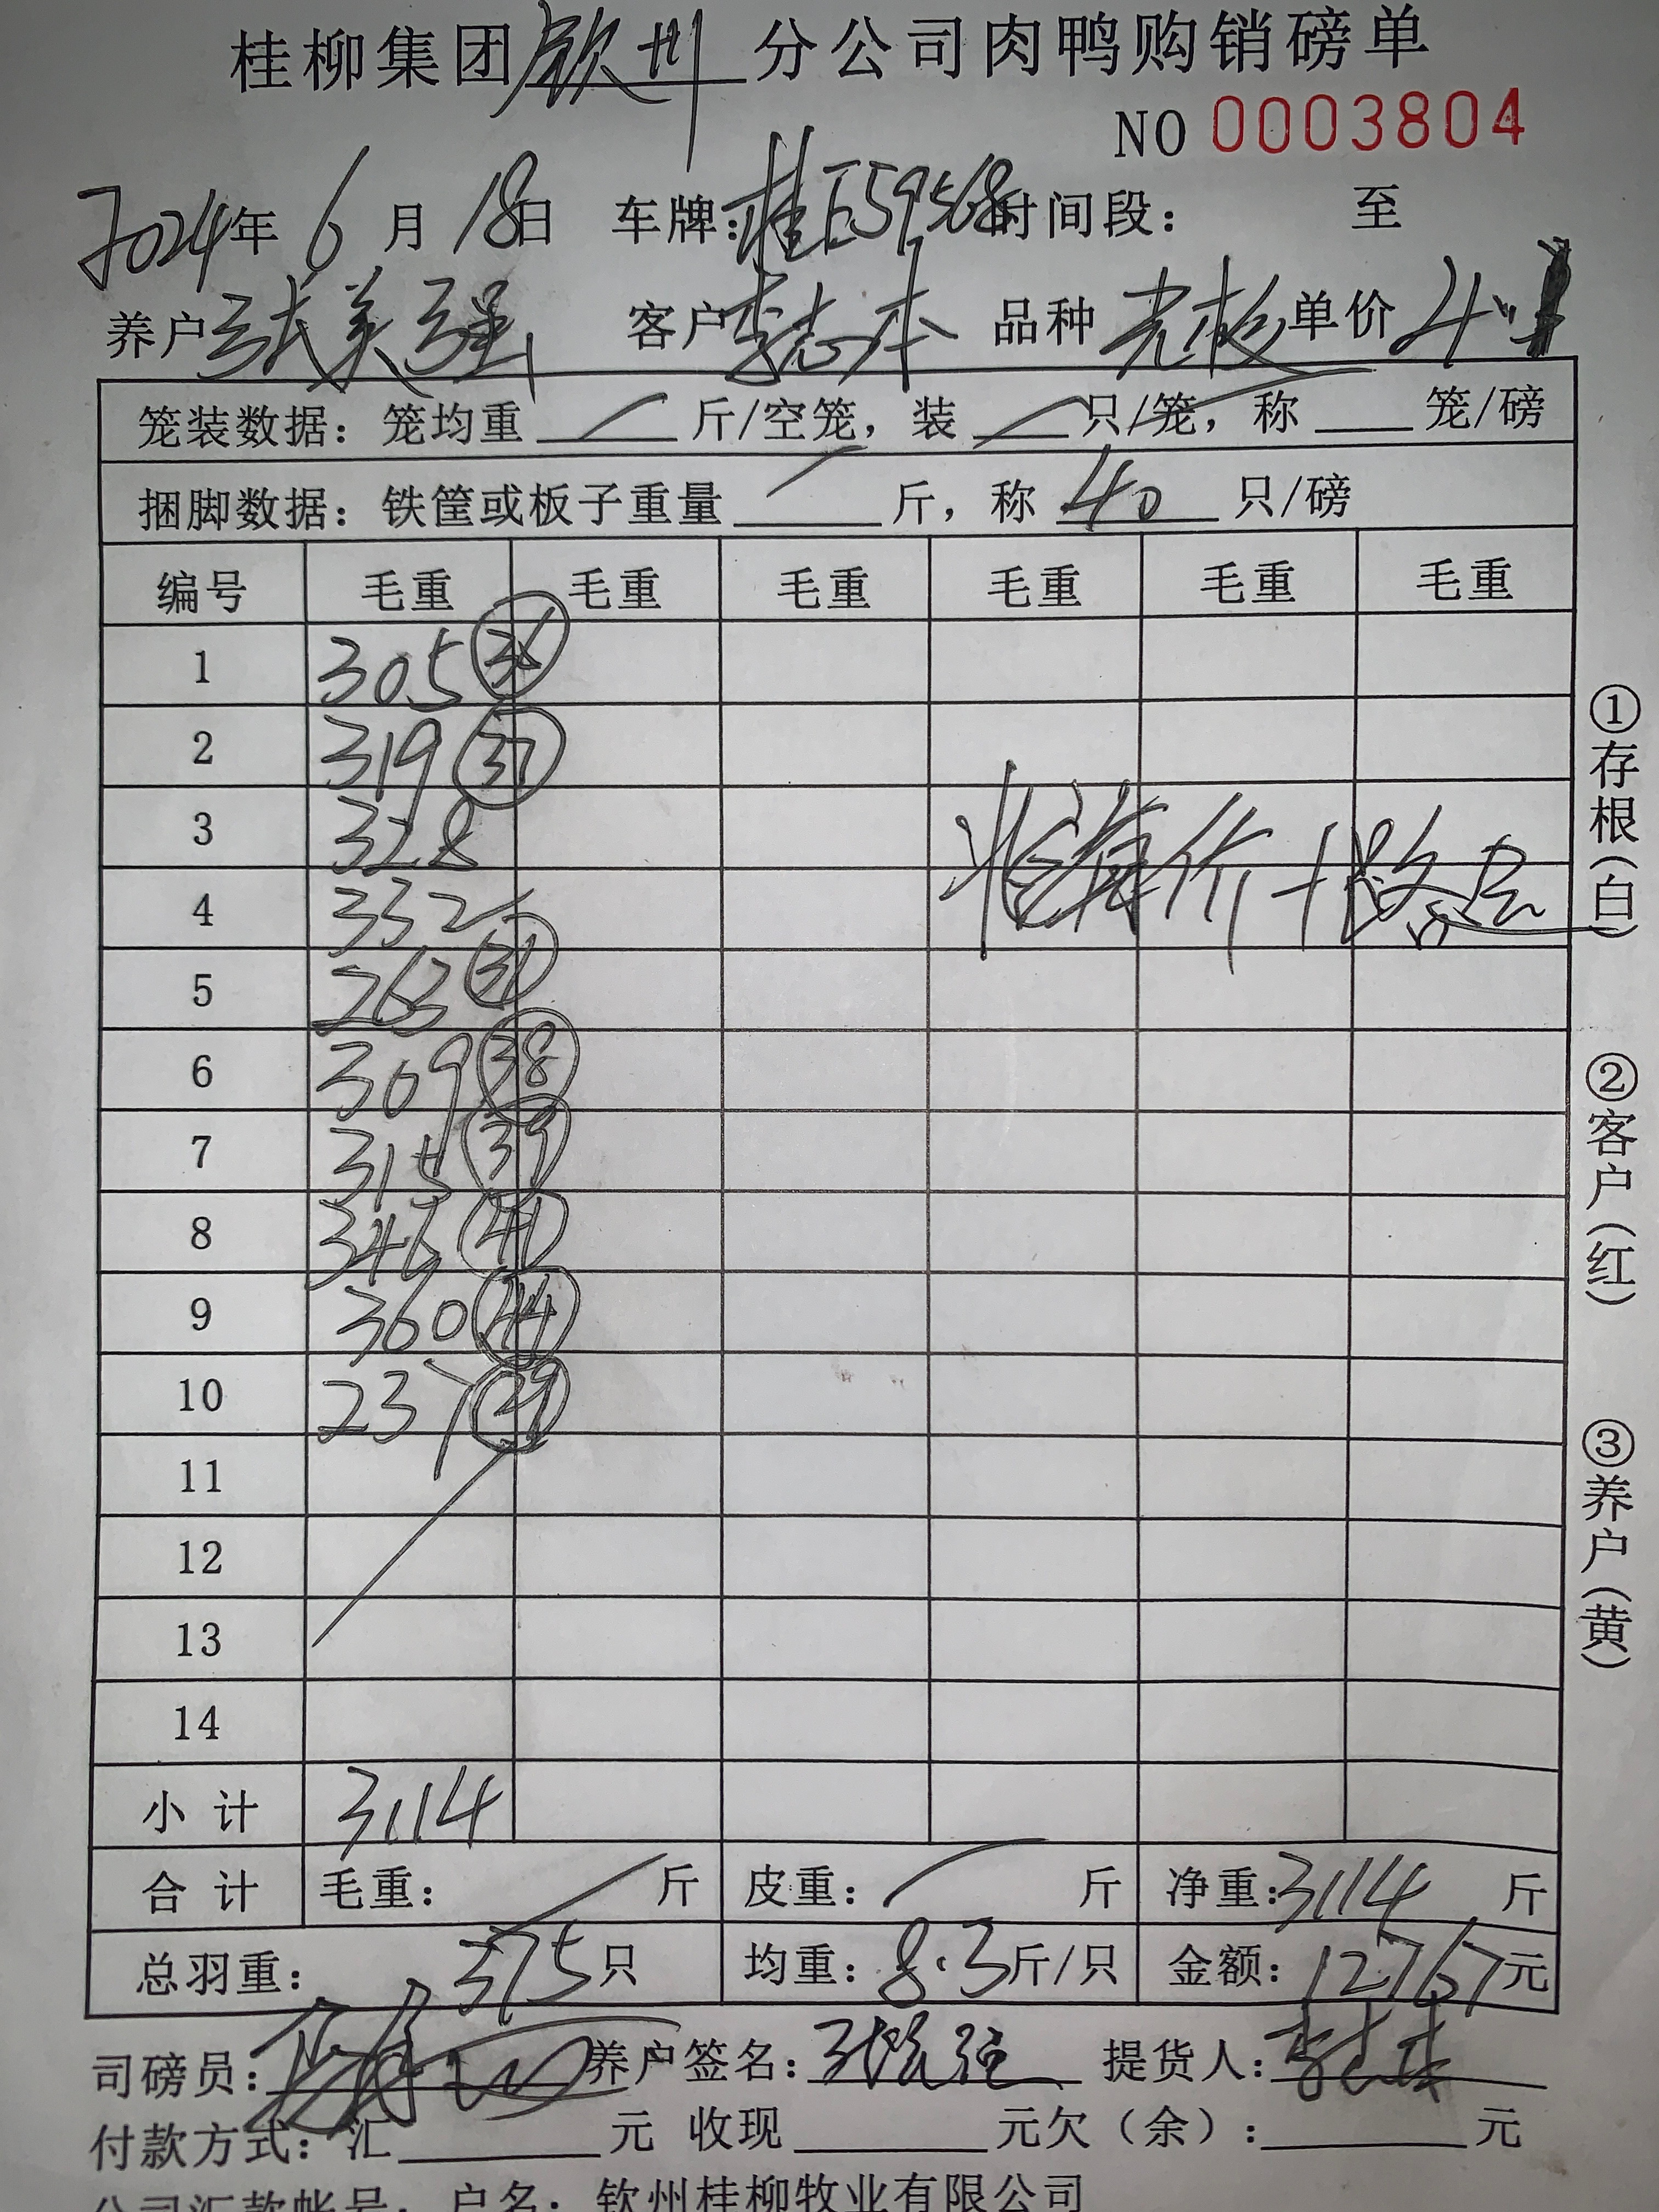 桂柳集团钦州分公司肉鸭购销磅单
NO 0003804
2024年 6 月 18日 车牌: 桂E59568 时间段: 至
养户 张美强 客户 李志本 品种 单价 4.1
笼装数据: 笼均重 斤/空笼, 装 只/笼, 称 笼/磅
捆脚数据: 铁筐或板子重量 斤, 称 40 只/磅
编号 毛重 毛重 毛重 毛重 毛重 毛重
1 305 36
2 319 37
3 328
4 332
5 263 31
6 309 38
7 315 39
8 346 41
9 360 44
10 237 29
11
12
13
14
小 计 3114
合 计 毛重: 斤 皮重: 斤 净重: 3114 斤
总羽重: 375 只 均重: 8.3 斤/只 金额: 12767 元
司磅员: 养户签名: 提货人:
付款方式: 汇 元 收现 元欠(余): 元
公司汇款帐号: 户名: 钦州桂柳牧业有限公司
①存根(白)
②客户(红)
③养户(黄)